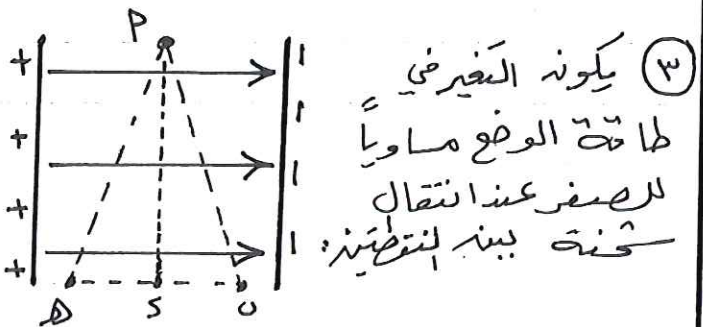 ٣ يكون التغير في
طاقة الوضع مساوياً
للصفر عند انتقال
شحنة بين النقطتين:
م
+
+
+
+
هـ د ن